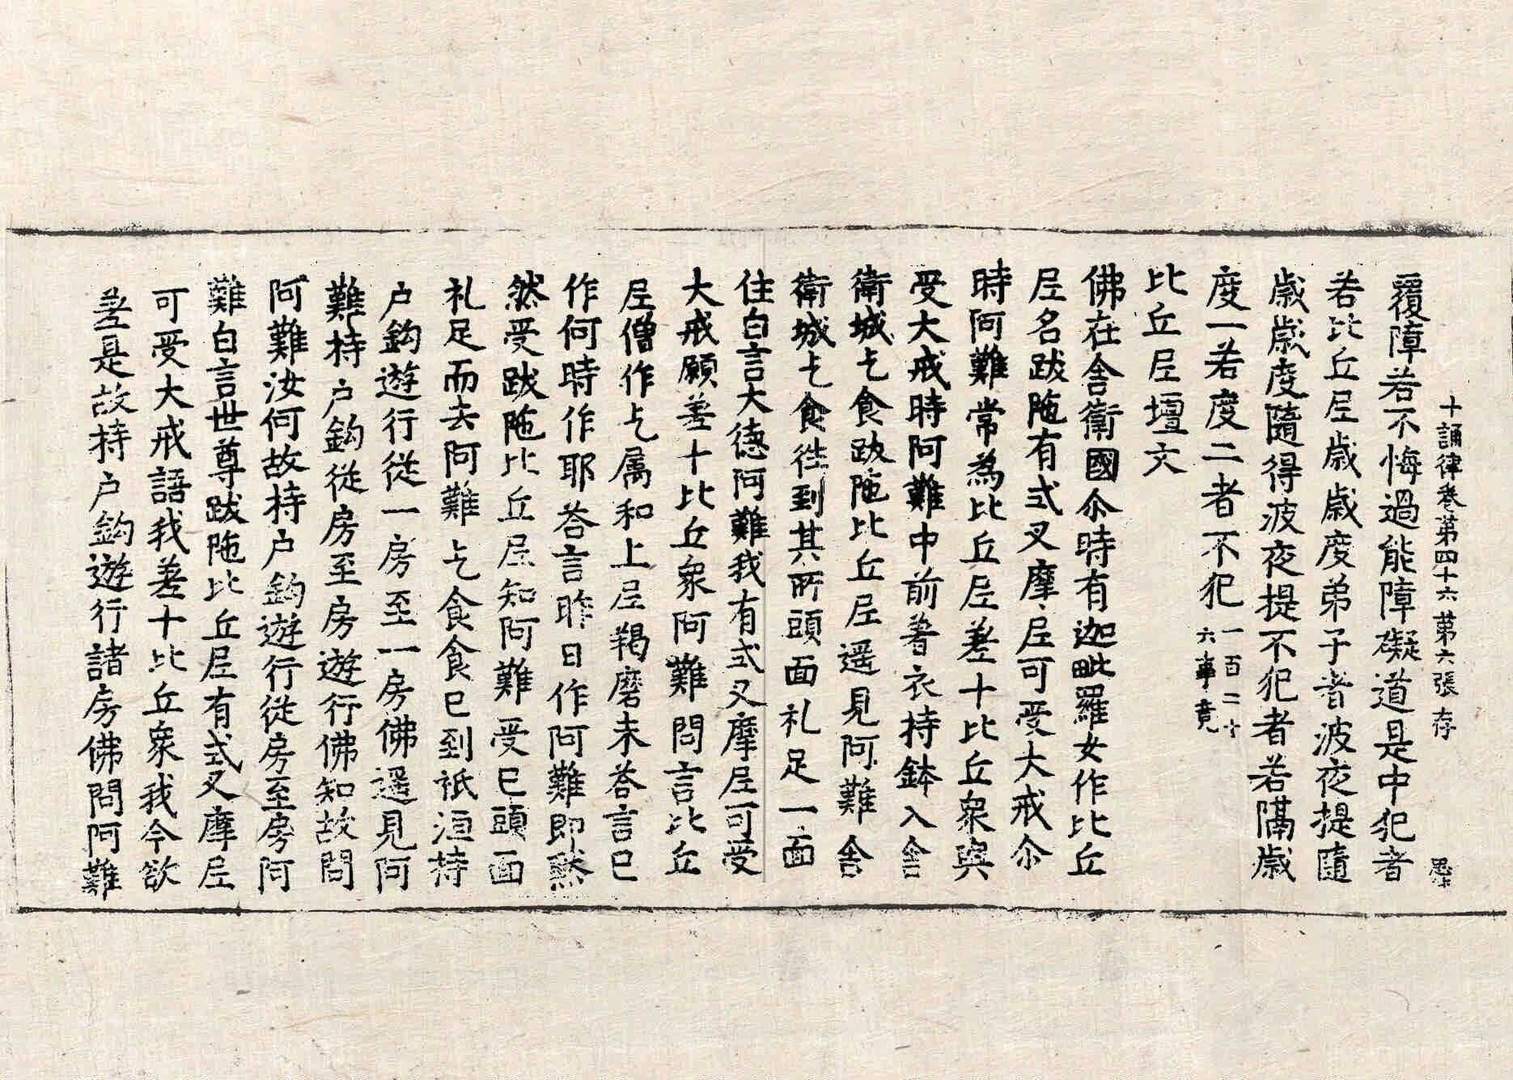 十誦律卷第四十六 第六張 存
覆障若不悔過能障礙道是中犯者
若比丘尼歲歲度弟子者波夜提隨
歲歲度隨得波夜提不犯者若隔歲
度一若度二者不犯 一百二十
六事竟
比丘尼壇文
佛在舍衛國尒時有迦毗羅女作比丘
尼名跋陁有式叉摩尼可受大戒尒
時阿難常為比丘尼差十比丘衆與
受大戒時阿難中前著衣持鉢入舍
衛城乞食跋陁比丘尼遥見阿難舍
衛城乞食徃到其所頭面礼足一面
住白言大德阿難我有式叉摩尼可受
大戒願差十比丘衆阿難問言比丘
尼僧作乞属和上尼羯磨未荅言已
作何時作耶荅言昨日作阿難即黙
然受跋陁比丘尼知阿難受已頭面
礼足而去阿難乞食食已到祇洹持
户鈎遊行從一房至一房佛遥見阿
難持户鈎從房至房遊行佛知故問
阿難汝何故持户鈎遊行從房至房阿
難白言世尊跋陁比丘尼有式叉摩尼
可受大戒語我差十比丘衆我今欲
差是故持户鈎遊行諸房佛問阿難